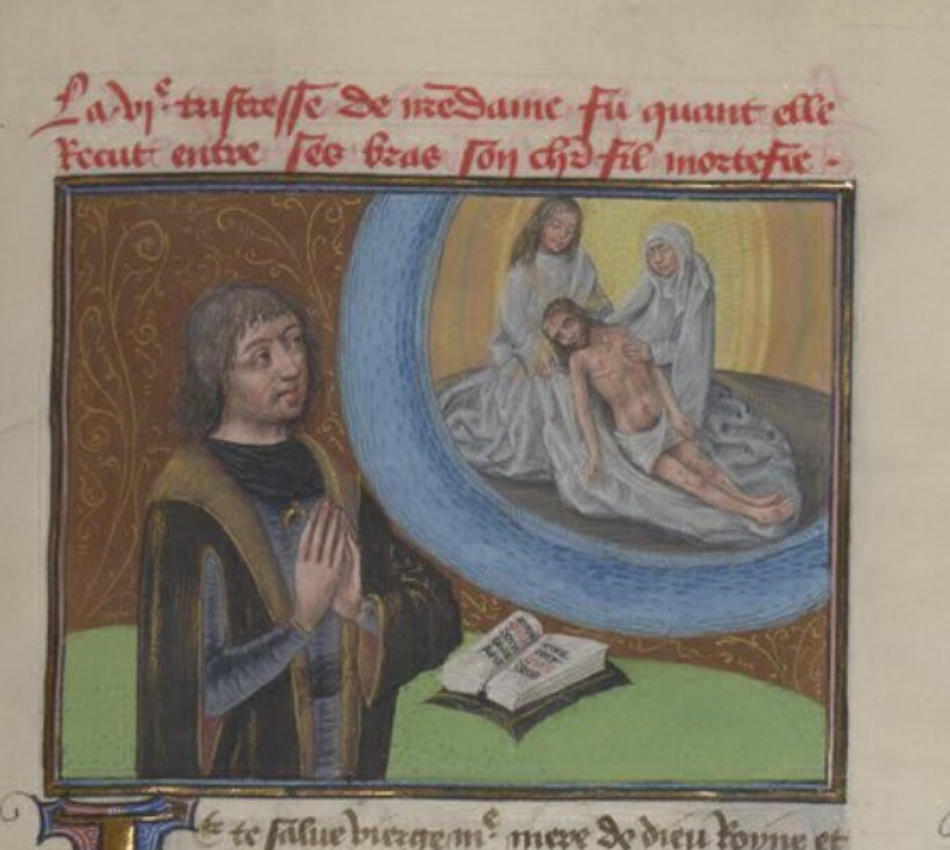 La vjᵉ tristresse de mēdame fu quant elle
Recut entre ses bras son chr̄ fil mortefie .
Ie te salue vierge mᵉ mere de dieu Royne et